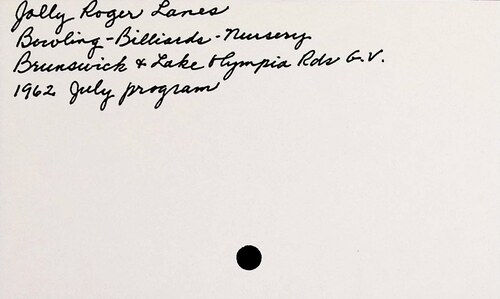 Jolly Roger Lanes
Bowling-Billiards-Nursery
Brunswick & Lake Olympia Rds G.V.
1962 July program